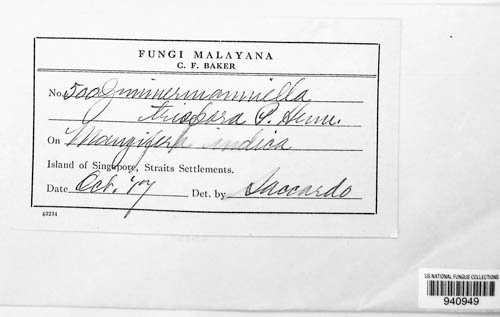 FUNGI MALAYANA
C. F. BAKER
No. 500 Zimmermanniella
trispora P. Henn.
On Mangifera indica
Island of Singapore, Straits Settlements.
Date Oct. '17 Det. by Saccardo
63234
US NATIONAL FUNGUS COLLECTIONS
940949